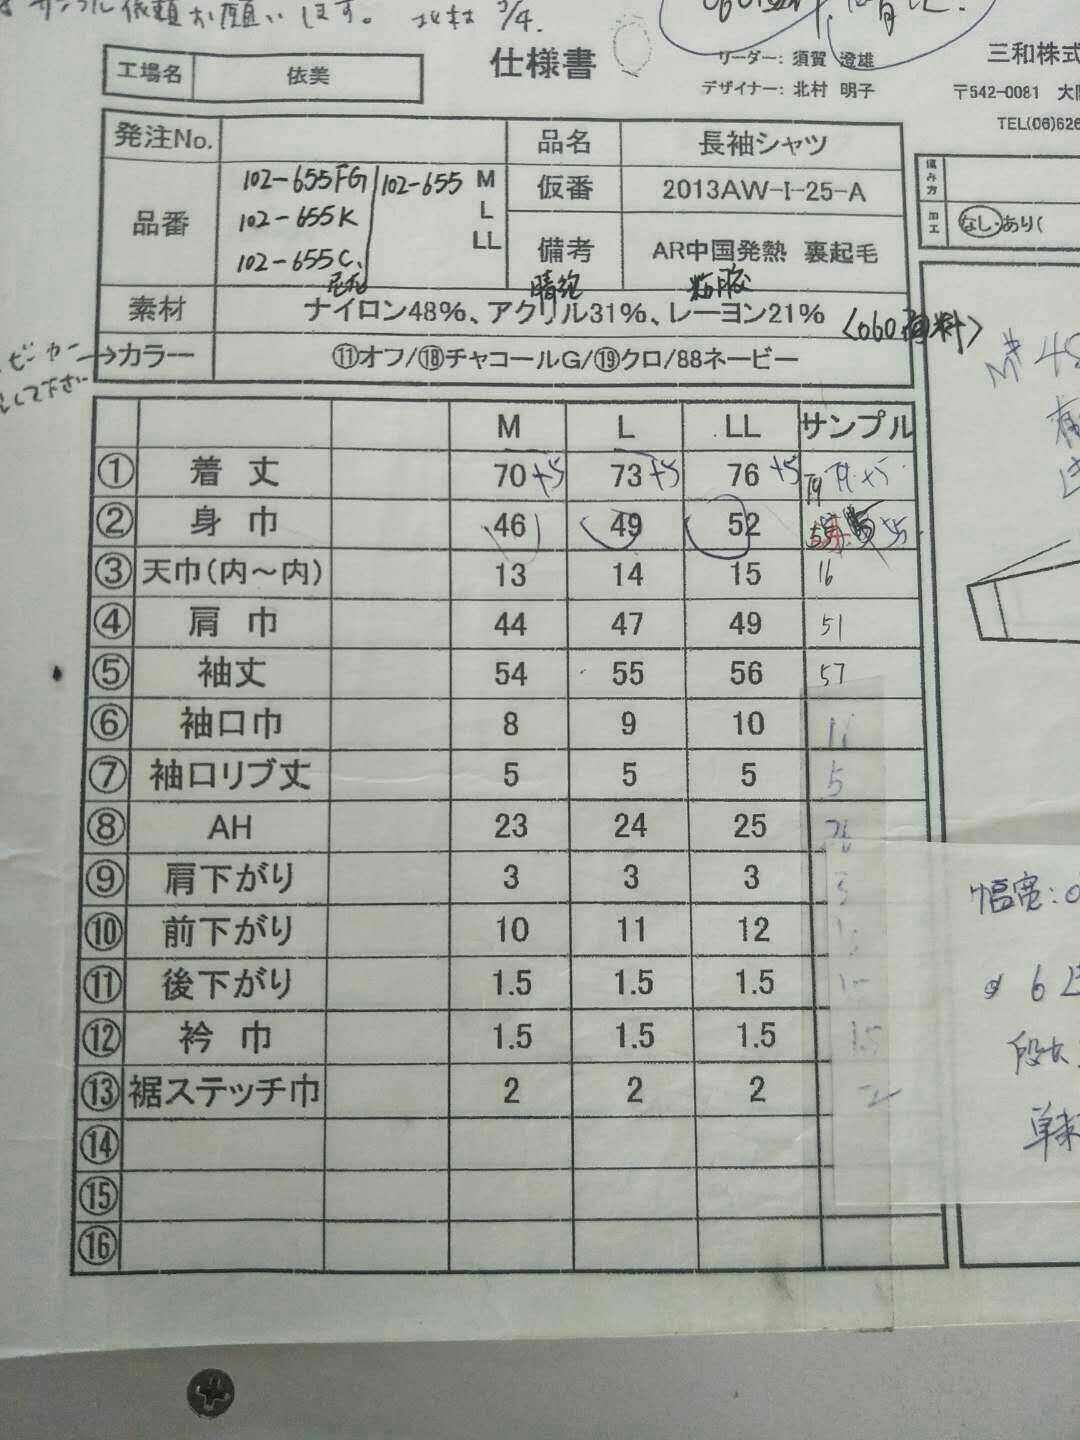 サンプル依頼お願いします。 北村 3/4.
工場名 依美
仕様書
リーダー: 須賀 澄雄
デザイナー: 北村 明子
三和株式
〒542-0081 大阪
TEL(06)626
発注No.
品名 長袖シャツ
品番
102-655FG
102-655K
102-655C.
102-655 M
L
LL
仮番 2013AW-I-25-A
備考 AR中国発熱 裏起毛
加工 なし・あり(
尼龙 腈纶 粘胶
素材 ナイロン48%、アクリル31%、レーヨン21%
→カラー ⑪オフ/⑱チャコールG/⑲クロ/88ネービー
して下さい
M L LL サンプル
① 着丈 70 +5 73 +5 76 +5 79 +5
② 身巾 46 49 52 55
③ 天巾(内～内) 13 14 15 16
④ 肩巾 44 47 49 51
⑤ 袖丈 54 55 56 57
⑥ 袖口巾 8 9 10 11
⑦ 袖口リブ丈 5 5 5 5
⑧ AH 23 24 25 26
⑨ 肩下がり 3 3 3 3
⑩ 前下がり 10 11 12
⑪ 後下がり 1.5 1.5 1.5
⑫ 衿巾 1.5 1.5 1.5 1.5
⑬ 裾ステッチ巾 2 2 2 2
⑭
⑮
⑯
幅宽: